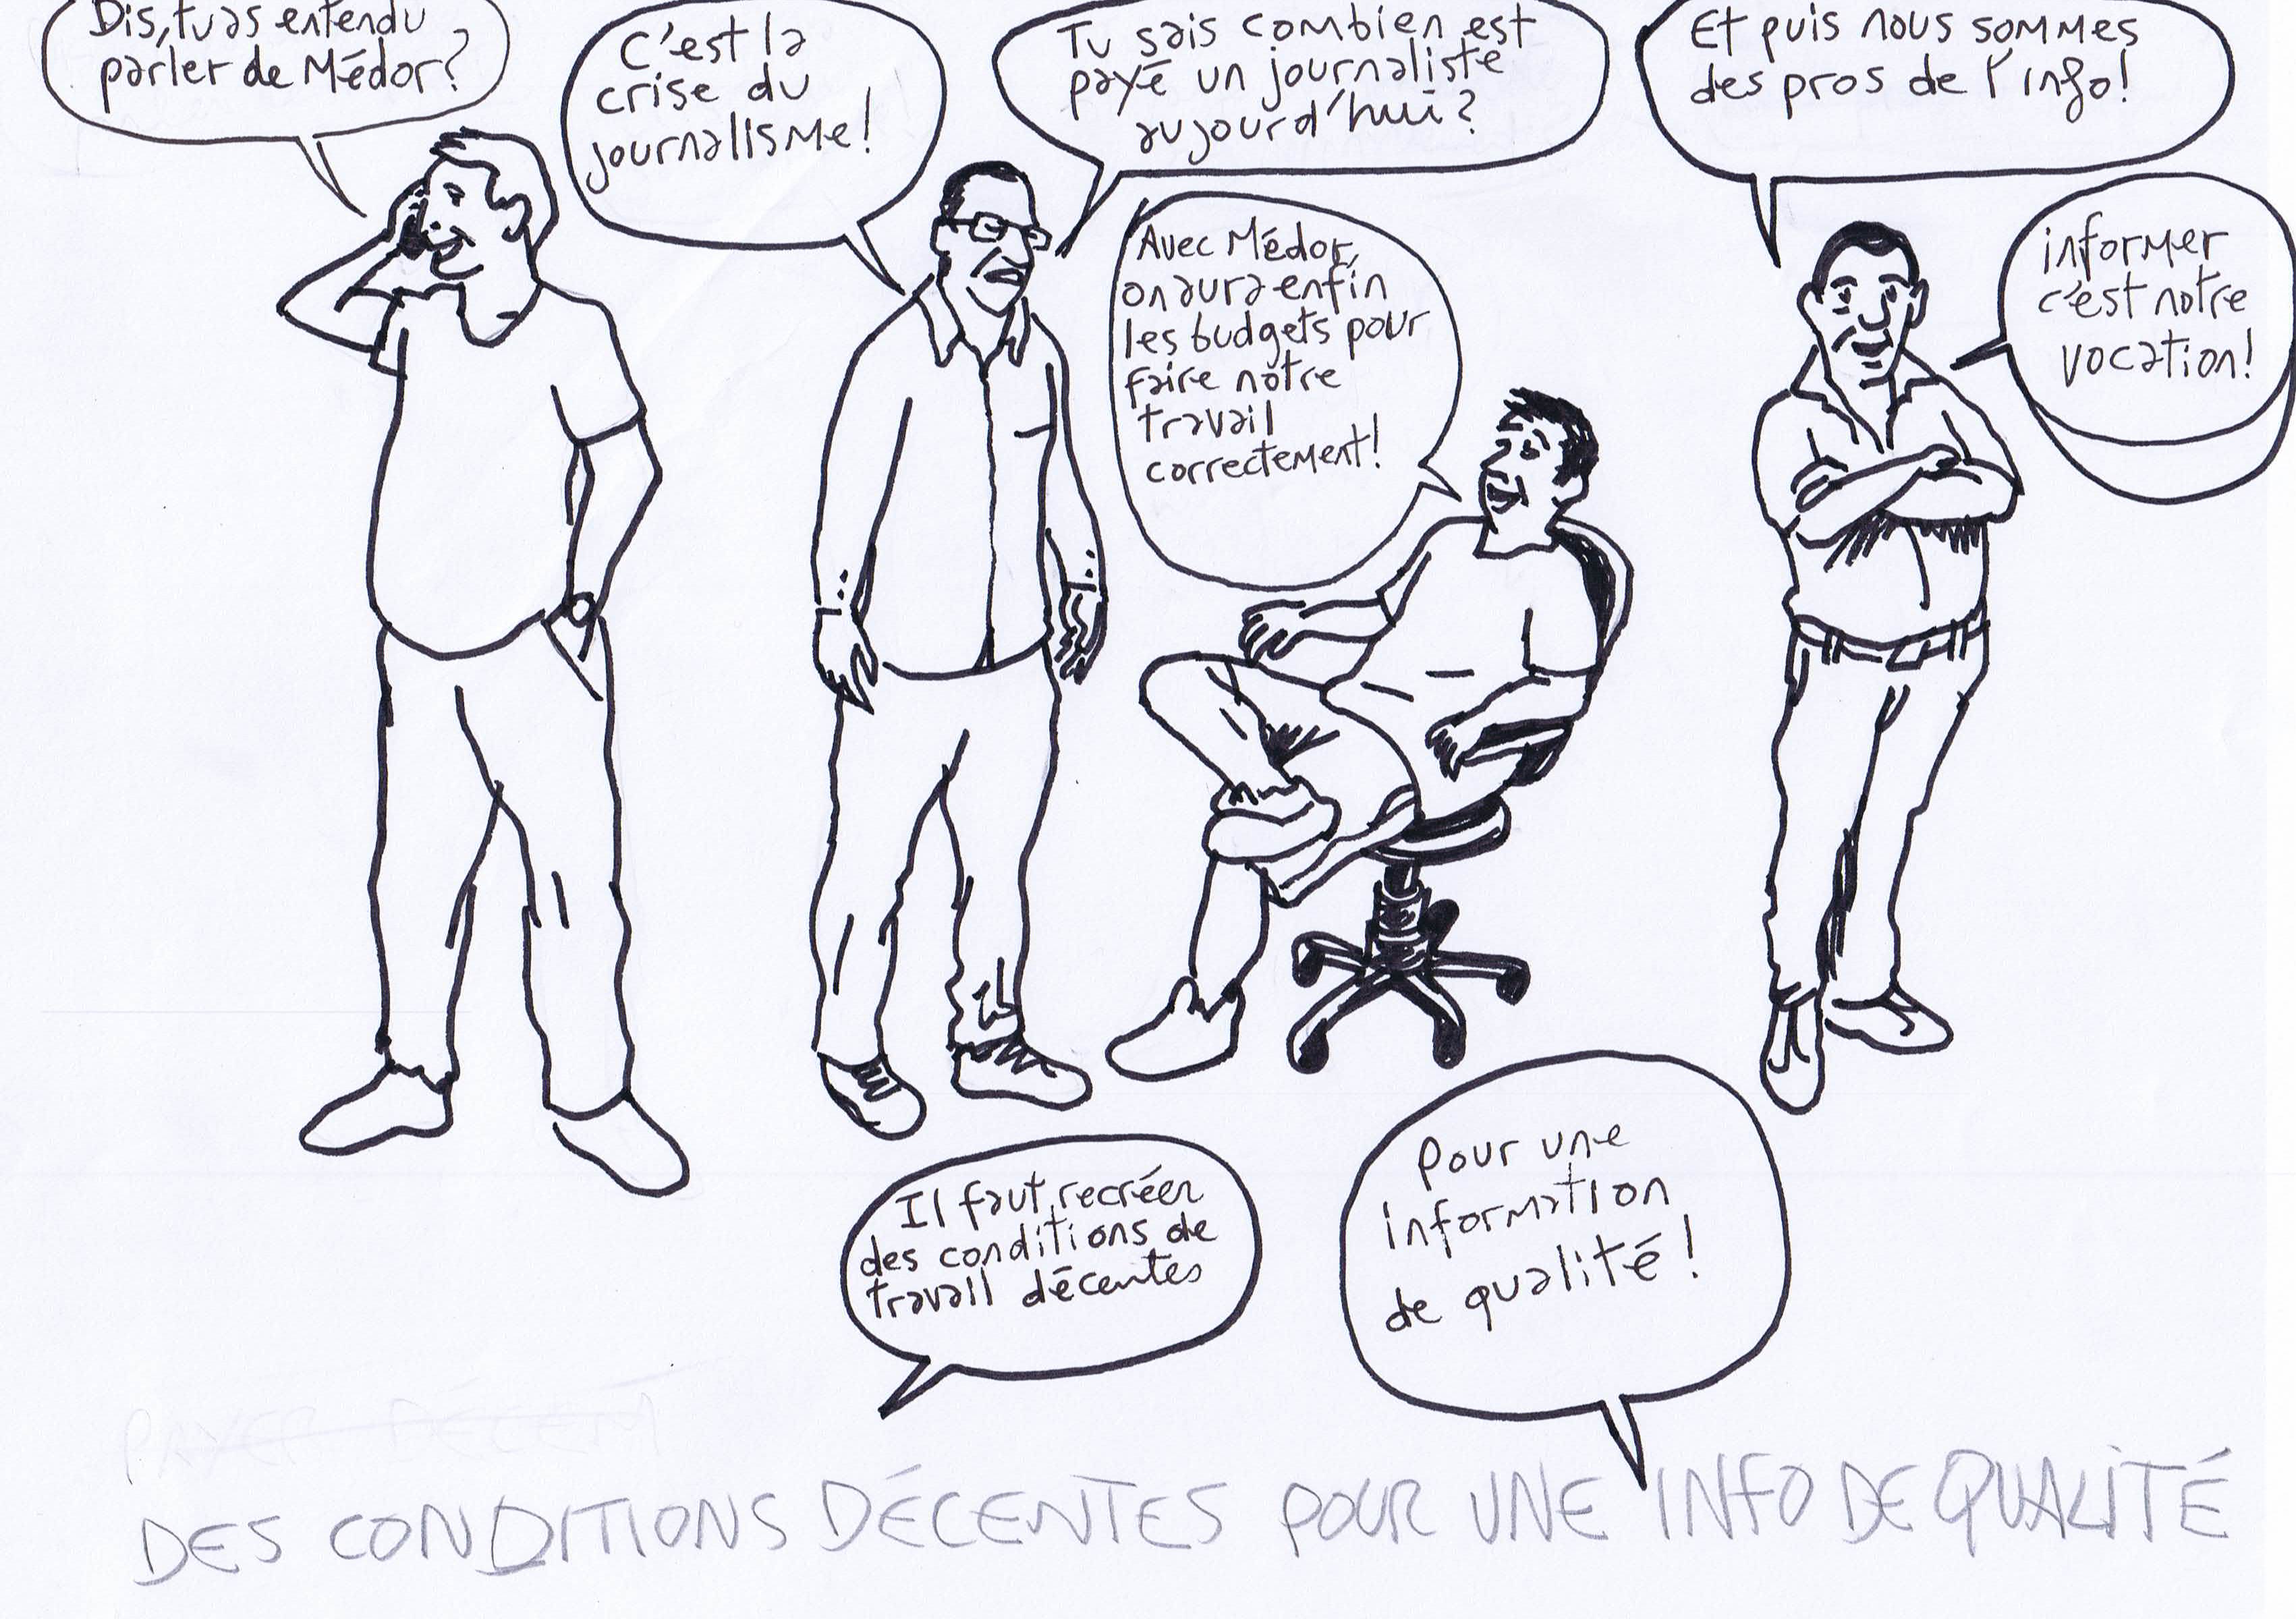 Dis, tu as entendu
parler de Médor?
C'est la
crise du
journalisme!
Tu sais combien est
payé un journaliste
aujourd'hui?
Et puis nous sommes
des pros de l'info!
Avec Médor,
on aura enfin
les budgets pour
faire notre
travail
correctement!
informer
c'est notre
vocation!
Il faut recréer
des conditions de
travail décentes
pour une
information
de qualité!
PAYER DÉCEM
DES CONDITIONS DÉCENTES POUR UNE INFO DE QUALITÉ